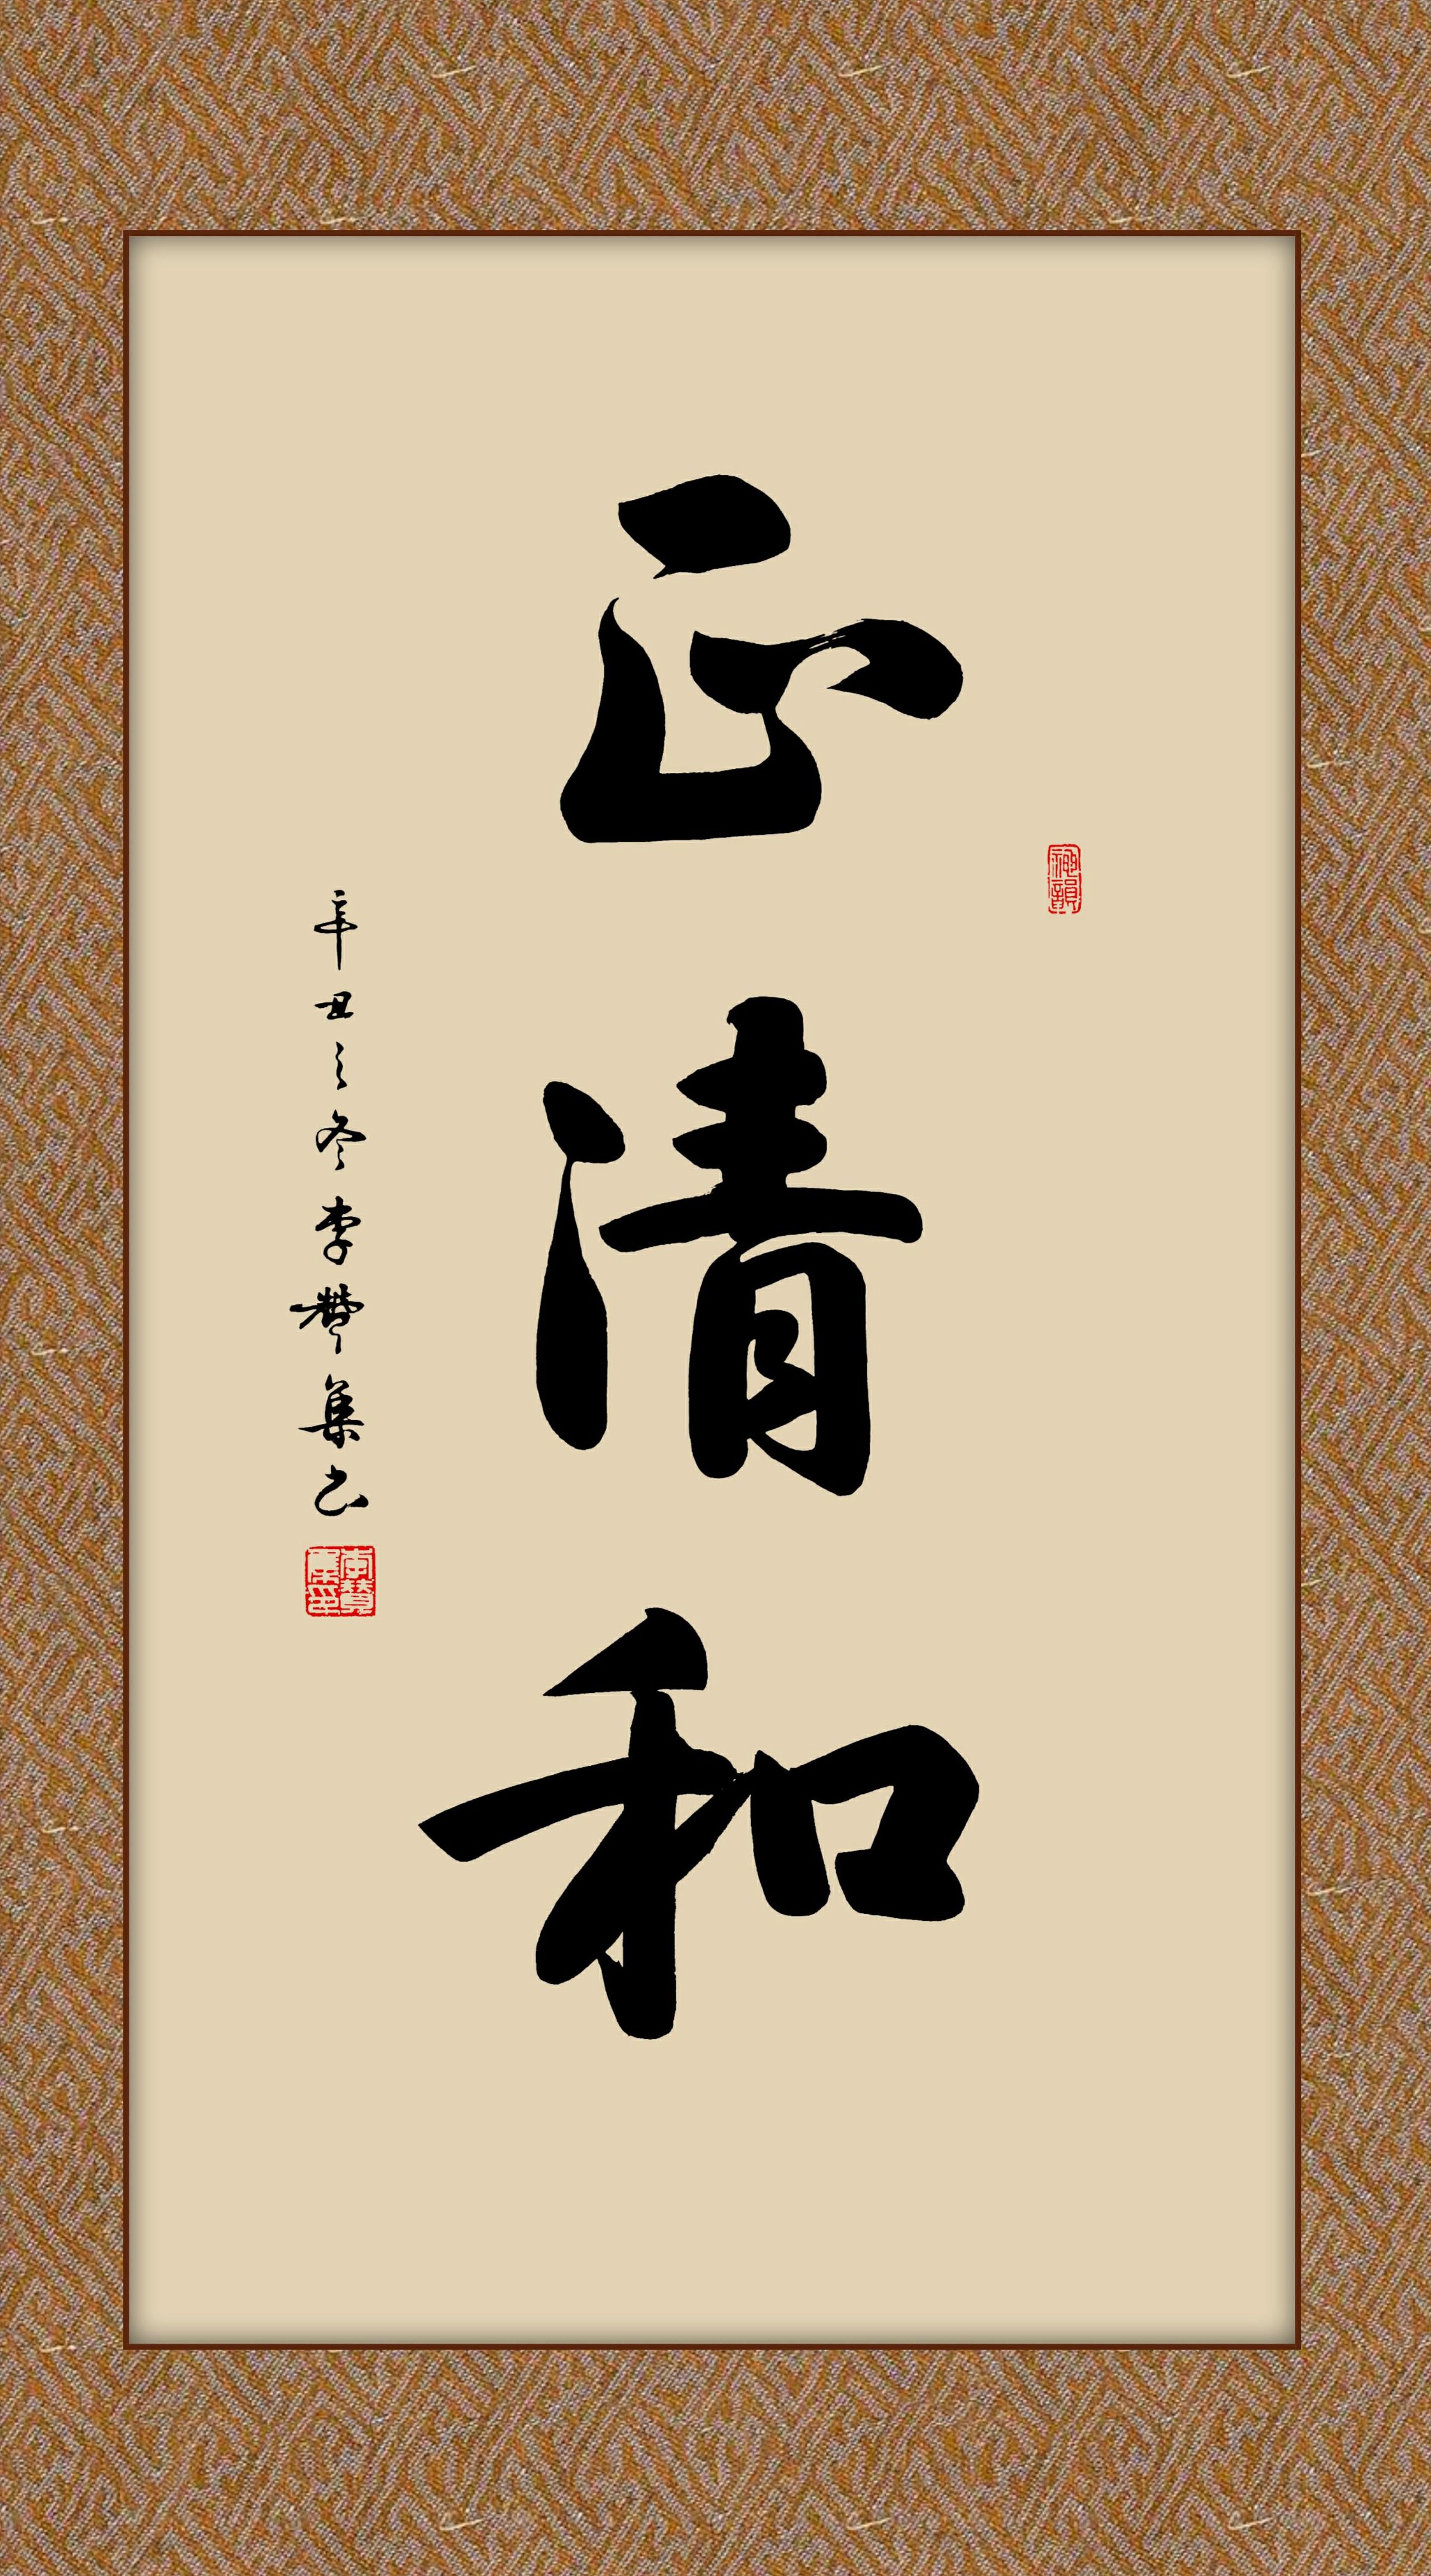 正清和
辛丑之冬李赞集书